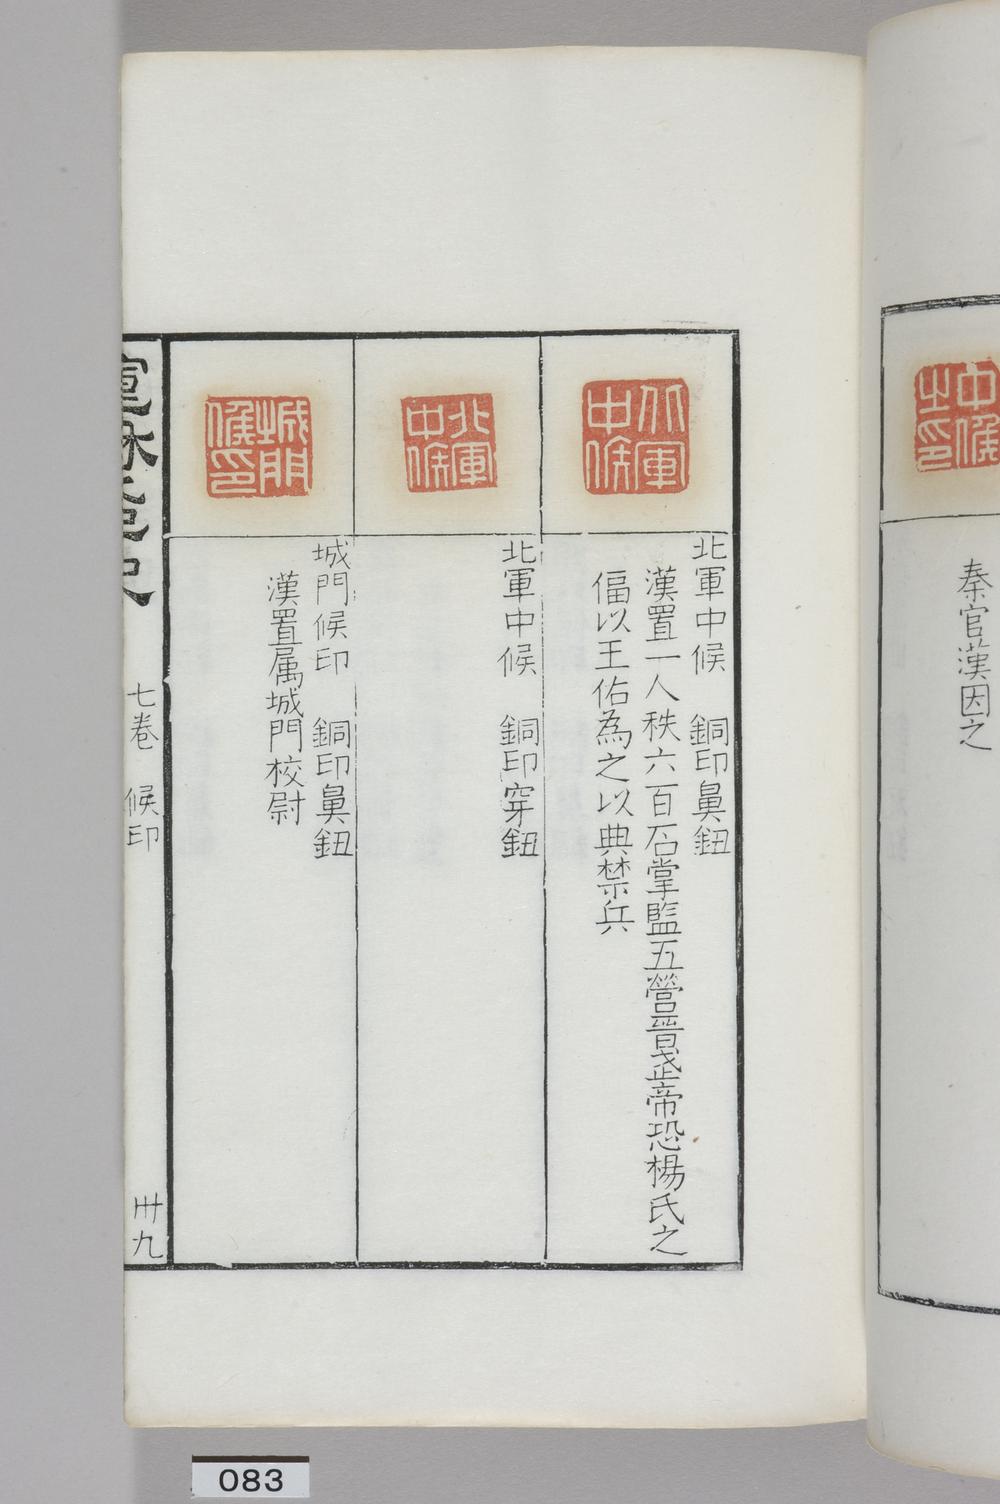 中候
之印
秦官漢因之
北軍
中候
北軍中候 銅印鼻鈕
漢置一人秩六百石掌監五營晉武帝恐楊氏之
偪以王佑為之以典禁兵
北軍
中候
北軍中候 銅印穿鈕
城門
候印
城門候印 銅印鼻鈕
漢置属城門校尉
七卷 候印
卅九
083